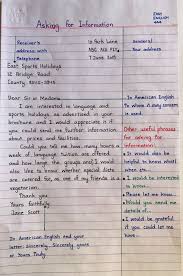 EASY ENGLISH
Asking for Information
Receiver's address with Telephone
10 Park Lane
7 June
East Sports Holidays
12 Bridge Road
County
Dear Sir or Madame
I am interested in language and
sports holidays as advertised in your
brochure and I would appreciate it if
you could send me further information
about prices and facilities.
Could you tell me how many hours a
week of language tuition are offered
and how large the groups are? I would
also like to know whether special diets
are catered for, as one of my friends is a
vegetarian.
Thank you
Yours faithfully
Jane Scott
In American English end your
letter: Sincerely, Sincerely
or Yours Truly
In American English
To whom it may concern
is used.
Other useful phrases
for asking for
information:
It would also be
helpful to know what/
when
I would be interested
to know...
Please would you
send me
Would you need me
details of...
I would be grateful
if you could let me
know...